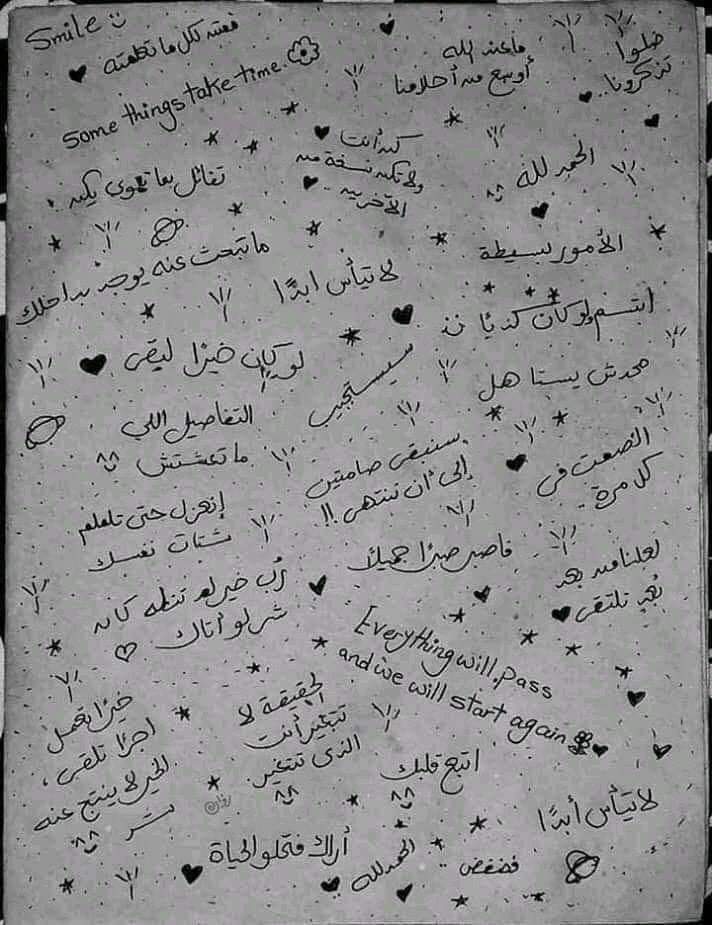 Smile
فمثلك لكل ما تطمته
Some things take time.
ما عند الله
أوسع من أحلامنا
ضلوا
تذكرونا
كن أنت
ولا تكن نسخة من
الآخرين
الحمد لله
تفائل بما تهوى يكن
ما تبحث عنه يوجد بداخلك
لا تيأس ابدًا
الأمور بسيطة
ابتسم ولو كان
لو كان خيرًا لبقى
سيستجيب
محدش يستاهل
التفاصيل اللي
ما تعشتش
سنبقى صامتين
إلى أن ننتهي !!
الصمت في
كل مرة
إنعزل حتى تلملم
شتات نفسك
فاصبر صبرًا جميلًا
لعلنا من بعد
بُعد نلتقى
رُب خير لم تنله كان
شر لو أتاك
Everything will pass
and we will start again
خيرًا تعمل
اجرًا تلقى،
الخير لا ينتج عنه
شر
الحقيقة لا
تتغير أنت
الذى تتغير
اتبع قلبك
لا تيأس أبدًا
أراك فتحلو الحياة
الحمد لله
فضفض